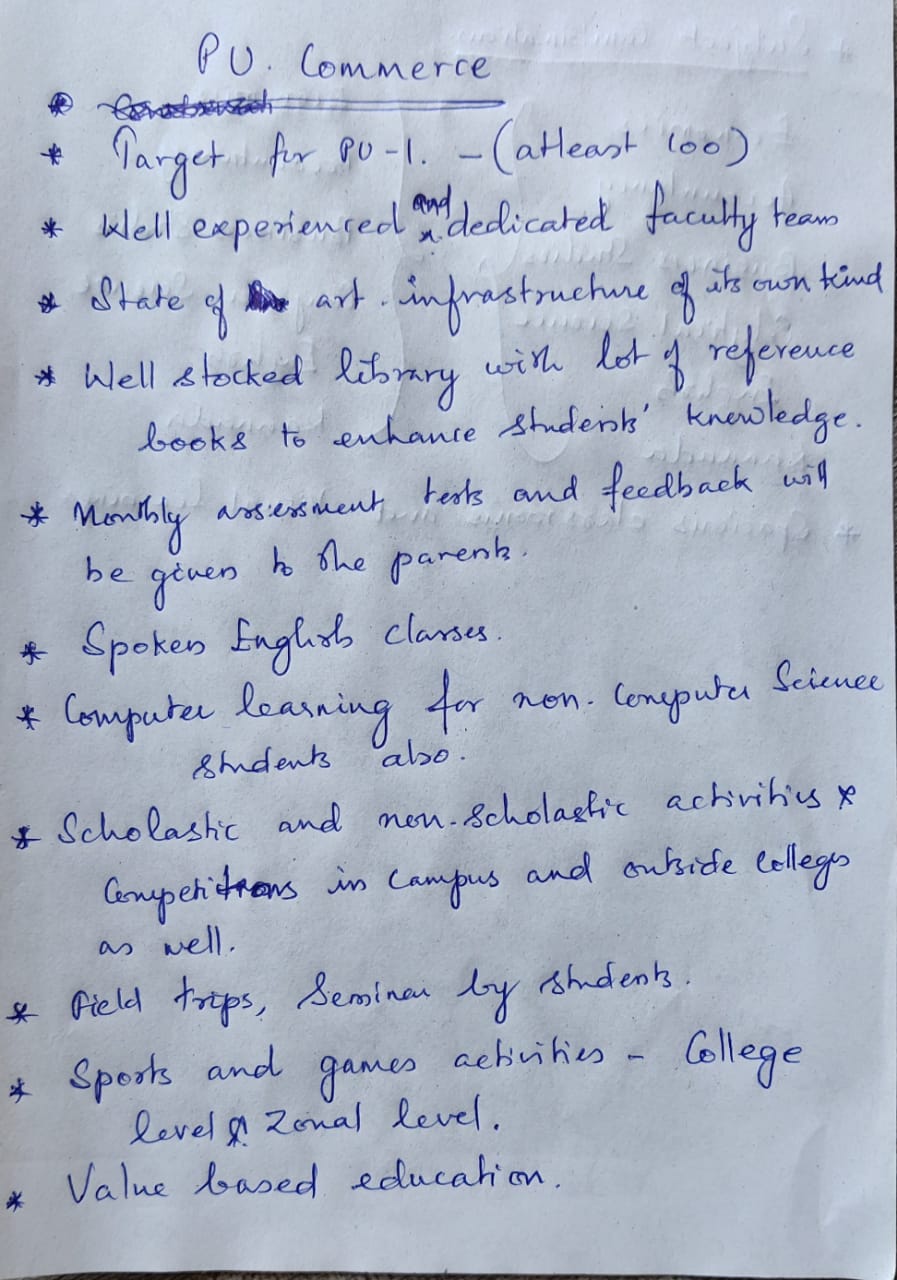 PU. Commerce
* Target for PU-1. - (atleast 100)
* Well experienced and dedicated faculty team
* State of art. infrastructure of its own kind
* Well stocked library with lot of reference
books to enhance students' knowledge.
* Monthly assessment, tests and feedback will
be given to the parents.
* Spoken English classes.
* Computer learning for non-Computer Science
students also.
* Scholastic and non-scholastic activities &
Competitions in campus and outside Colleges
as well.
* Field trips, Seminar by students.
* Sports and games activities - College
level & Zonal level.
* Value based education.